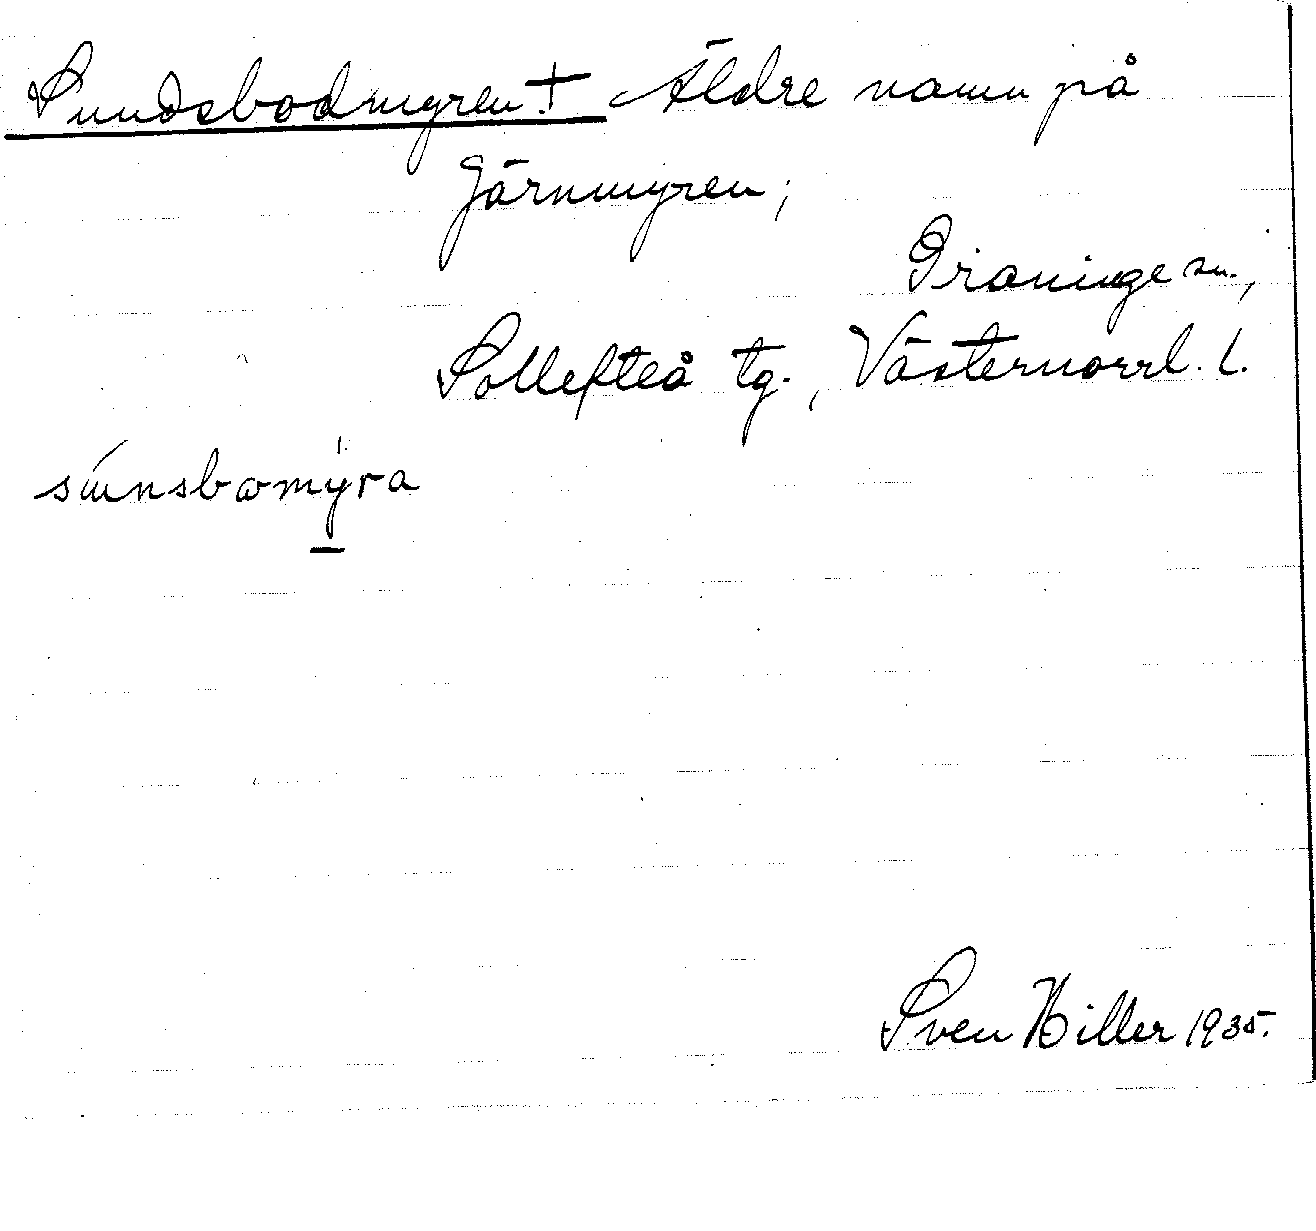 Sundsbodmyren † Äldre namn på
Järnmyren;
Graninge sn.,
Sollefteå tg., Västernorrl. l.
Sven Hiller 1935.